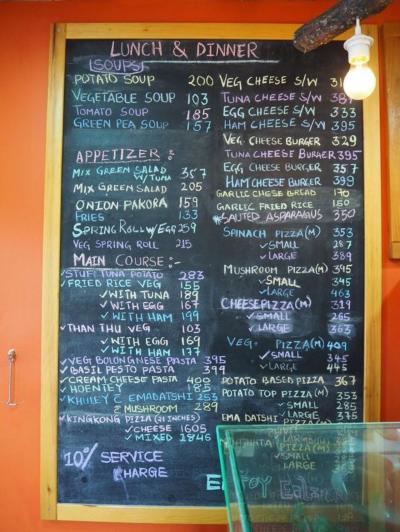 LUNCH & DINNER
(SOUPS)
POTATO SOUP 200
VEGETABLE SOUP 103
TOMATO SOUP 185
GREEN PEA SOUP 157
APPETIZER :-
MIX GREEN SALAD W/TUNA 357
MIX GREEN SALAD 205
ONION PAKORA 159
FRIES 133
SPRING ROLL W/EGG 259
VEG SPRING ROLL 215
MAIN COURSE :-
STUFF TUNA POTATO 283
FRIED RICE VEG 155
WITH TUNA 189
WITH EGG 167
WITH HAM 199
THAN THU VEG 103
WITH EGG 169
WITH HAM 177
VEG BOLONGNESE PASTA 395
BASIL PESTO PASTA 399
CREAM CHEESE PASTA 400
HOENTEY 185
KHULEY & EMADATSHI 253
& MUSHROOM 289
KINGKONG PIZZA (21 INCHES)
CHEESE 1605
MIXED 2846
10% SERVICE CHARGE
VEG CHEESE S/W
TUNA CHEESE S/W 387
EGG CHEESE S/W 333
HAM CHEESE S/W 395
VEG CHEESE BURGER 329
TUNA CHEESE BURGER 395
EGG CHEESE BURGER 357
HAM CHEESE BURGER 399
GARLIC CHEESE BREAD 170
GARLIC FRIED RICE 150
SAUTED ASPARAGUS 350
SPINACH PIZZA(M) 353
SMALL 287
LARGE 389
MUSHROOM PIZZA(M) 395
SMALL 345
LARGE 463
CHEESE PIZZA(M) 319
SMALL 265
LARGE 363
VEG. PIZZA(M) 409
SMALL 345
LARGE 445
POTATO BASED PIZZA 367
POTATO TOP PIZZA 353
SMALL 285
LARGE 375
EMA DATSHI PIZZA(M)
SMALL
LARGE
PIZZA(M)
SMALL
LARGE
ENJOY